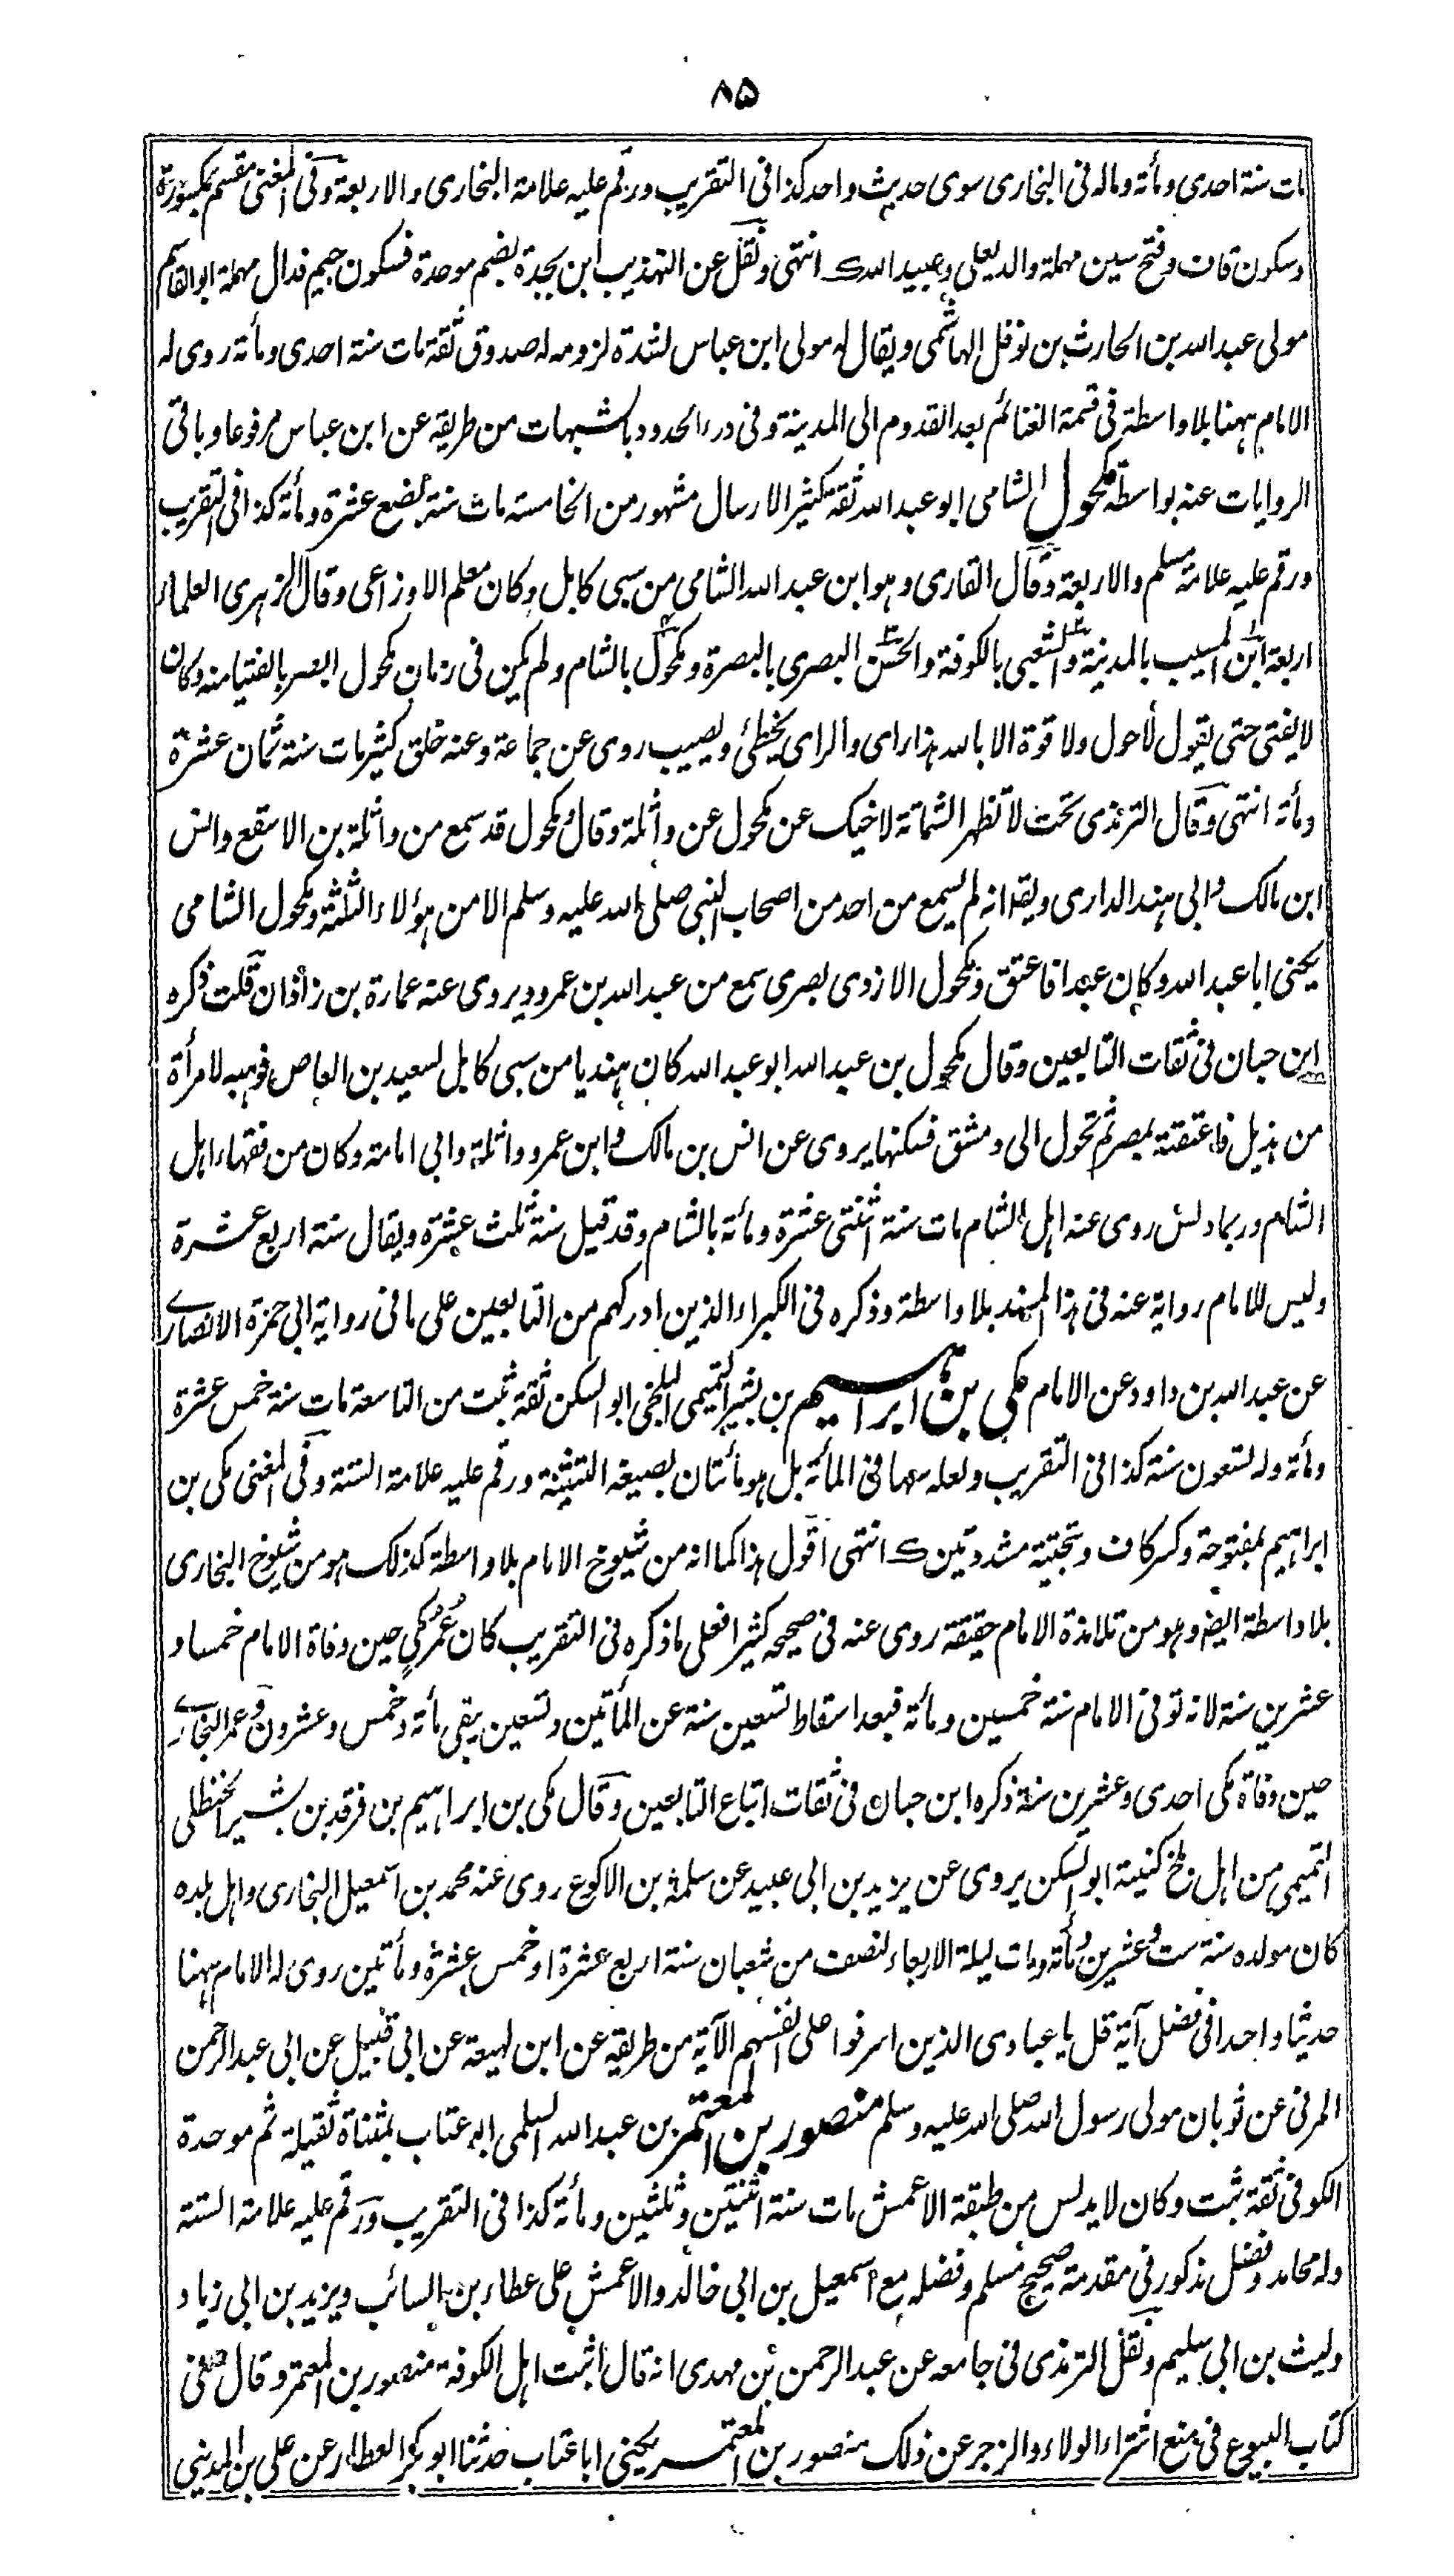 ٨٥
مات سنة احدى ومأة وماله فى البخارى سوى حديث واحد كذا فى التقريب ورقم عليه علامة البخارى والاربعة وفى المغنى مقسم بمكسورة
وسكون قاف وفتح سين مهملة والد يعلى وعبيد الله ك انتهى ونقل عن التهذيب ابن بجدة بضم موحدة فسكون جيم فدال مهملة ابو القاسم
مولى عبد الله بن الحارث بن نوفل الهاشمى ويقال له مولى ابن عباس لشدة لزومه له صدوق ثقة مات سنة احدى ومأة روى له
الامام ههنا بلا واسطة فى قسمة الغنائم بعد القدوم الى المدينة وفى درء الحدود بالشبهات من طريقه عن ابن عباس مرفوعا وباقى
الروايات عنه بواسطة مكحول الشامى ابو عبد الله ثقة كثير الارسال مشهور من الخامسة مات سنة بضع عشرة ومأة كذا فى التقريب
ورقم عليه علامة مسلم والاربعة وقال القارى وهو ابن عبد الله الشامى من سبى كابل وكان معلم الاوزاعى وقال الزهرى العلماء
اربعة ابن المسيب بالمدينة والشعبى بالكوفة والحسن البصرى بالبصرة ومكحول بالشام ولم يكن فى زمان مكحول ابصر بالفتيا منه وكان
لا يفتى حتى يقول لا حول ولا قوة الا بالله هذا راى والراى يخطئ ويصيب روى عن جماعة وعنه خلق كثير مات سنة ثمان عشرة
ومأة انتهى وقال الترمذى تحت لا تظهر الشماتة لاخيك عن مكحول عن واثلة وقال مكحول قد سمع من واثلة بن الاسقع وانس
ابن مالك وابى هند الدارى ويقال انه لم يسمع من احد من اصحاب النبى صلى الله عليه وسلم الا من هؤلاء الثلثة ومكحول الشامى
يكنى ابا عبد الله وكان عبدا فاعتق ومكحول الازدى بصرى سمع من عبد الله بن عمرو ويروى عنه عمارة بن زاذان قلت ذكره
ابن حبان فى ثقات التابعين وقال مكحول بن عبد الله ابو عبد الله كان هنديا من سبى كابل لسعيد بن العاص فوهبه لامرأة
من هذيل فاعتقته بمصر ثم تحول الى دمشق فسكنها يروى عن انس بن مالك وابن عمر وواثلة وابى امامة وكان من فقهاء اهل
الشام وربما دلس روى عنه اهل الشام مات سنة اثنتى عشرة ومأة بالشام وقد قيل سنة ثلث عشرة ويقال سنة اربع عشرة
وليس للامام رواية عنه فى هذا المسند بلا واسطة وذكره فى الكبراء الذين ادركهم من التابعين على ما فى رواية ابى حمزة الانصارے
عن عبد الله بن داود عن الامام مكى بن ابراهيم بن بشير التميمى البلخى ابو السكن ثقة ثبت من التاسعة مات سنة خمس عشرة
ومأة وله تسعون سنة كذا فى التقريب ولعله سها فى المأة بل هو مأتان بصيغة التثنية ورقم عليه علامة الستة وفى المغنى مكى بن
ابراهيم بمفتوحة وكسر كاف وتحتية مشددتين ك انتهى اقول هذا كما انه من شيوخ الامام بلا واسطة كذلك هو من شيوخ البخارى
بلا واسطة ايضا وهو من تلامذة الامام حقيقة روى عنه فى صحيحه كثيرا فعلى ما ذكره فى التقريب كان عمر مكى حين وفاة الامام خمسا و
عشرين سنة لانه توفى الامام سنة خمسين ومأة فبعد اسقاط تسعين سنة عن المأتين وتسعين يبقى مأة وخمس وعشرون وعمر البخارے
حين وفاة مكى احدى وعشرين سنة ذكره ابن حبان فى ثقات اتباع التابعين وقال مكى بن ابراهيم بن فرقد بن بشير الحنظلى
التميمى من اهل بلخ كنيته ابو السكن يروى عن يزيد بن ابى عبيد عن سلمة بن الاكوع روى عنه محمد بن اسمعيل البخارى واهل بلده
كان مولده سنة ست وعشرين ومأة ومات ليلة الاربعاء لنصف من شعبان سنة اربع عشرة او خمس عشرة ومأتين روى له الامام ههنا
حديثا واحدا فى فضل آية قل يا عبادى الذين اسرفوا على انفسهم الآية من طريقه عن ابن لهيعة عن ابى قبيل عن ابى عبد الرحمن
المرنى عن ثوبان مولى رسول الله صلى الله عليه وسلم منصور بن المعتمر بن عبد الله السلمى ابو عتاب بمثناة ثقيلة ثم موحدة
الكوفى ثقة ثبت وكان لا يدلس من طبقة الاعمش مات سنة اثنتين وثلثين ومأة كذا فى التقريب ورقم عليه علامة الستة
وله محامد وفضل مذكور فى مقدمة صحيح مسلم وفضله مع اسمعيل بن ابى خالد والاعمش على عطاء بن السائب ويزيد بن ابى زياد
وليث بن ابى سليم ونقل الترمذى فى جامعه عن عبد الرحمن بن مهدى انه قال اثبت اهل الكوفة منصور بن المعتمر وقال فى
كتاب البيوع فى منع اشتراء الولاء والزجر عن ذلك منصور بن المعتمر يكنى ابا عتاب حدثنا ابو بكر العطار عن على بن المدينى